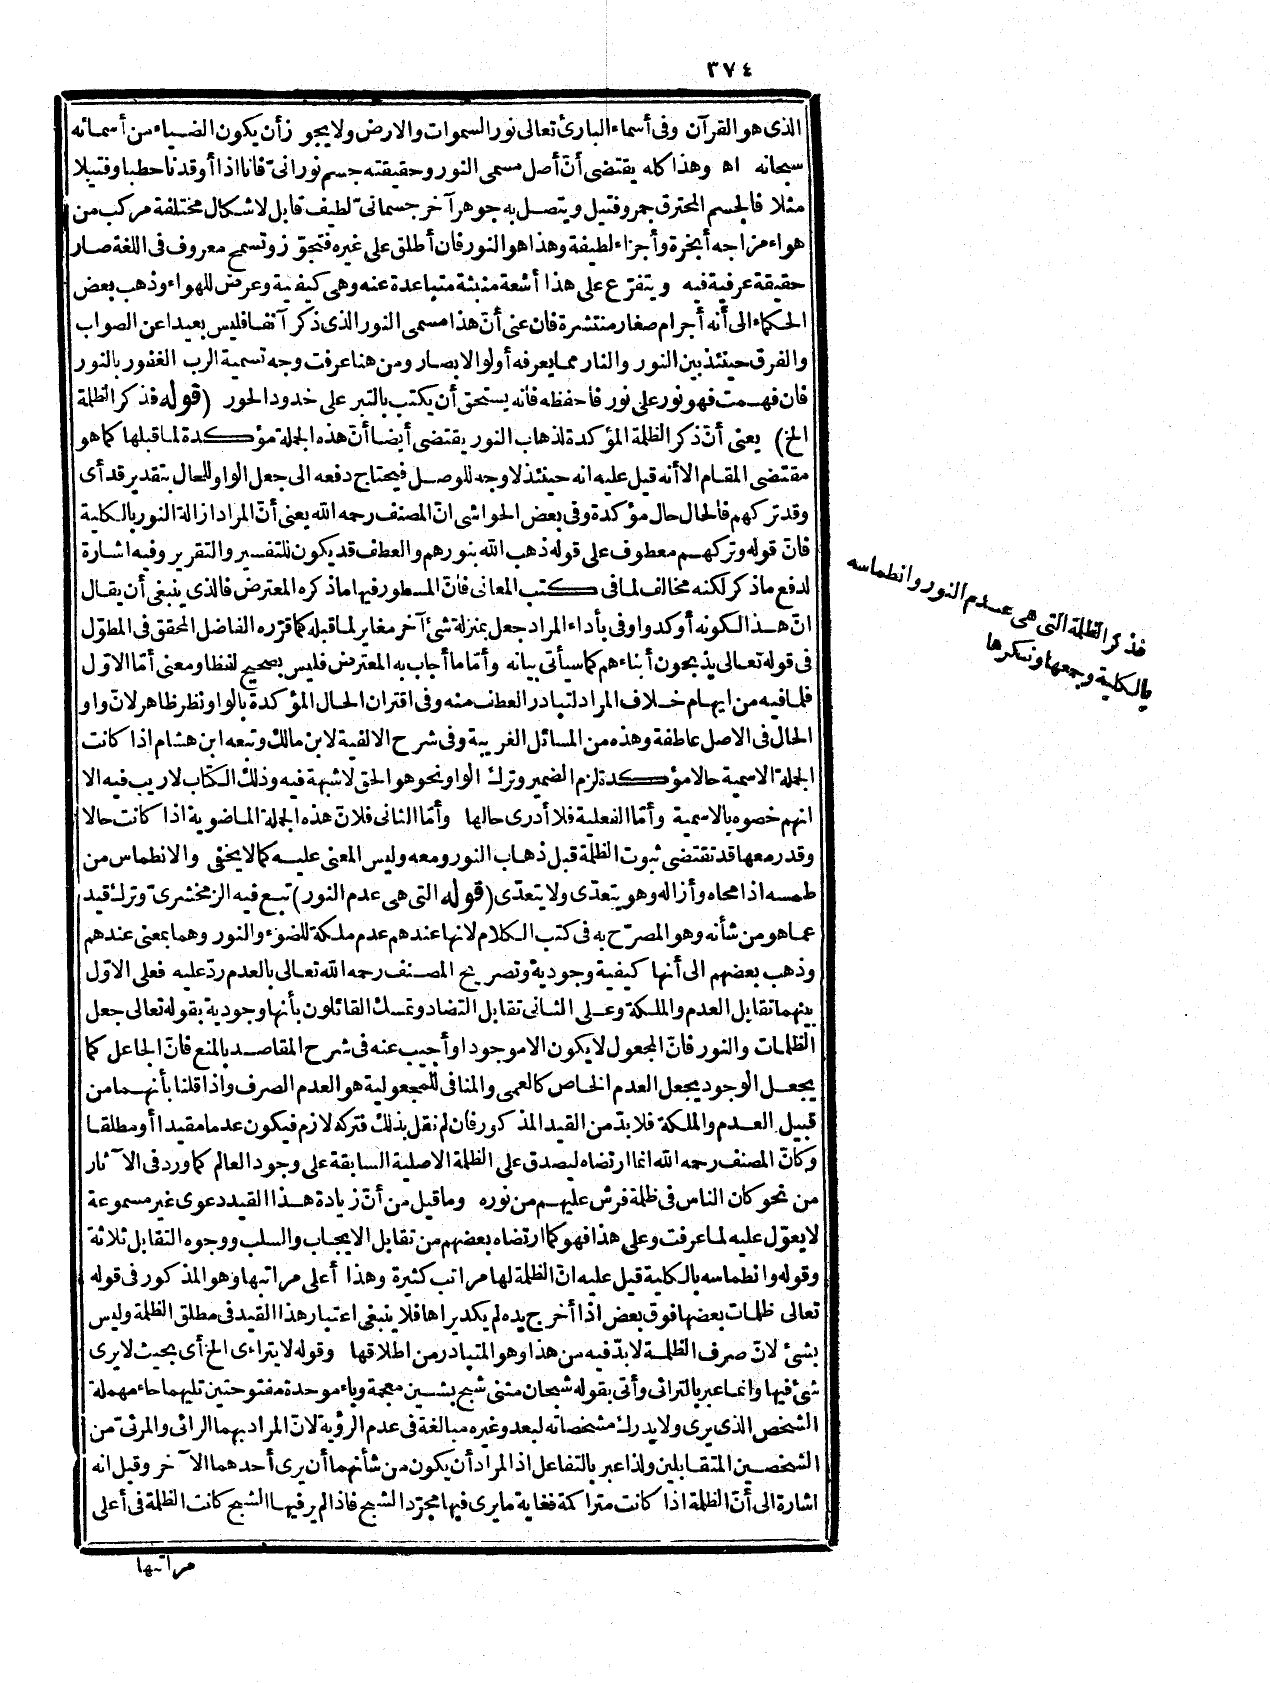 ٣٧٤
الذى هو القرآن وفى أسماء البارئ تعالى نور السموات والارض ولا يجوز أن يكون الضياء من أسمائه
سبحانه اه وهذا كله يقتضى أنّ أصل مسمى النور وحقيقته جسم نورانىّ فانا اذا أوقدنا حطبا وفتيلا
مثلا فالجسم المحترق جمر وفتيل ويتصل به جوهر آخر جسمانىّ لطيف قابل لاشكال مختلفة مركب من
هواء مزاجه أبخرة وأجزاء لطيفة وهذا هو النور فان أطلق على غيره فتجوّز وتسمح معروف فى اللغة صار
حقيقة عرفية فيه ويتفرّع على هذا أشعة منبثة متباعدة عنه وهى كيفية وعرض للهواء وذهب بعض
الحكماء الى أنه أجرام صغار منتشرة فان عنى أنّ هذا مسمى النور الذى ذكر آنفا فليس بعيدا عن الصواب
والفرق حينئذ بين النور والنار مما يعرفه أولو الابصار ومن هنا عرفت وجه تسمية الرب الغفور بالنور
فان فهمت فهو نور على نور فاحفظه فانه يستحق أن يكتب بالتبر على خدود الحور (قوله فذكر الظلمة
الخ) يعنى أنّ ذكر الظلمة المؤكدة لذهاب النور يقتضى أيضا أنّ هذه الجملة مؤكدة لما قبلها كما هو
مقتضى المقام الا أنه قيل عليه انه حينئذ لا وجه للوصل فيحتاج دفعه الى جعل الواو للحال بتقدير قد أى
وقد تركهم فالحال حال مؤكدة وفى بعض الحواشى انّ المصنف رحمه الله يعنى أنّ المراد ازالة النور بالكلية
فانّ قوله وتركهم معطوف على قوله ذهب الله بنورهم والعطف قد يكون للتفسير والتقرير وفيه اشارة
لدفع ما ذكر لكنه مخالف لما فى كتب المعانى فانّ المسطور فيها ما ذكره المعترض فالذى ينبغى أن يقال
انّ هذا لكونه أوكد وأوفى بأداء المراد جعل بمنزلة شئ آخر مغاير لما قبله كما قرّره الفاضل المحقق فى المطوّل
فى قوله تعالى يذبحون أبناءهم كما سيأتى بيانه وأمّا ما أجاب به المعترض فليس بصحيح لفظا ومعنى أمّا الاوّل
فلما فيه من ايهام خلاف المراد لتبادر العطف منه وفى اقتران الحال المؤكدة بالواو نظر ظاهر لانّ واو
الحال فى الاصل عاطفة وهذه من المسائل الغريبة وفى شرح الالفية لابن مالك وتبعه ابن هشام اذا كانت
الجملة الاسمية حالا مؤكدة لزم الضمير وترك الواو نحو هو الحق لا شبهة فيه وذلك الكتاب لا ريب فيه الا
انهم خصوه بالاسمية وأمّا الفعلية فلا أدرى حالها وأمّا الثانى فلانّ هذه الجملة الماضوية اذا كانت حالا
وقدر معها قد تقتضى ثبوت الظلمة قبل ذهاب النور ومعه وليس المعنى عليه كما لا يخفى والانطماس من
طمسه اذا محاه وأزاله وهو يتعدّى ولا يتعدّى (قوله التى هى عدم النور) تبع فيه الزمخشرىّ وترك قيد
عما هو من شأنه وهو المصرّح به فى كتب الكلام لانها عندهم عدم ملكة للضوء والنور وهما بمعنى عندهم
وذهب بعضهم الى أنها كيفية وجودية وتصريح المصنف رحمه الله تعالى بالعدم ردّ عليه فعلى الاوّل
بينهما تقابل العدم والملكة وعلى الثانى تقابل التضاد وتمسك القائلون بأنها وجودية بقوله تعالى جعل
الظلمات والنور فانّ المجعول لا يكون الا موجودا وأجيب عنه فى شرح المقاصد بالمنع فانّ الجاعل كما
يجعل الوجود يجعل العدم الخاص كالعمى والمنافى للمجعولية هو العدم الصرف واذا قلنا بأنهما من
قبيل العدم والملكة فلا بدّ من القيد المذكور فان لم نقل بذلك فتركه لازم فيكون عدما مقيدا أو مطلقا
وكأنّ المصنف رحمه الله انما ارتضاه ليصدق على الظلمة الاصلية السابقة على وجود العالم كما ورد فى الآثار
من نحو كان الناس فى ظلمة فرش عليهم من نوره وما قيل من أنّ زيادة هذا القيد دعوى غير مسموعة
لا يعوّل عليه لما عرفت وعلى هذا فهو كما ارتضاه بعضهم من تقابل الايجاب والسلب ووجوه التقابل ثلاثة
وقوله وانطماسه بالكلية قيل عليه انّ الظلمة لها مراتب كثيرة وهذا أعلى مراتبها وهو المذكور فى قوله
تعالى ظلمات بعضها فوق بعض اذا أخرج يده لم يكد يراها فلا ينبغى اعتبار هذا القيد فى مطلق الظلمة وليس
بشئ لانّ صرف الظلمة لا بدّ فيه من هذا وهو المتبادر من اطلاقها وقوله لا يتراءى الخ أى بحيث لا يرى
شئ فيها وانما عبر بالترائى وأتى بقوله شبحان مثنى شبح بشين معجمة وباء موحدة مفتوحتين تليهما حاء مهملة
الشخص الذى يرى ولا يدرك مشخصاته لبعد وغيره مبالغة فى عدم الرؤية لانّ المراد بهما الرائى والمرئىّ من
الشخصين المتقابلين ولذا عبر بالتفاعل اذ المراد أن يكون من شأنهما أن يرى أحدهما الآخر وقيل انه
اشارة الى أنّ الظلمة اذا كانت متراكمة فغاية ما يرى فيها مجرّد الشبح فاذا لم ير فيها الشبح كانت الظلمة فى أعلى
مراتبها
فذكر الظلمة التى هى عدم النور وانطماسه
بالكلية وجمعها ونكرها